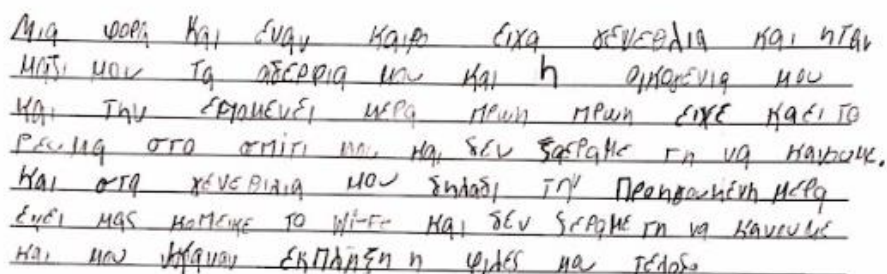 Μια φορα και εναν καιρο ειχα γενεθλια και ηταν
μαζι μου τα αδερφια μου και η οικογενια μου
και την ερχομενει μερα πρωη πρωη ειχε καει το
ρευμα στο σπιτι μου και δεν ξαεραμε τη να κανουμε.
και στα γενεθλια μου δηλαδι την Προηγουμενη μερα
ενει μας το Wi-Fi και δεν ξεραμε τη να κανουμε
και μου καναν εκπληξη η φιλες μου τελοσ